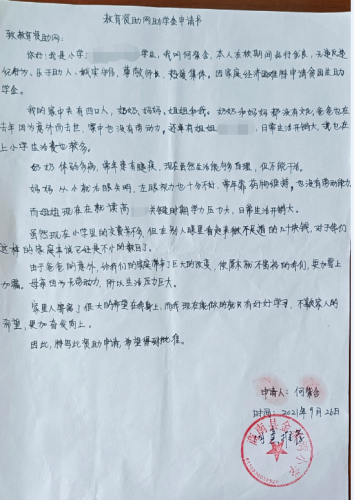 教育资助网助学金申请书
教育资助网:
你好!我是小学 学生,我叫何紫含,本人在校期间品行良好,
纪律好、乐于助人、诚实守信、尊敬师长、热爱集体,因家庭经济困难特申请贫困生助
学金。
我的家中共有四口人,奶奶、妈妈、姐姐和我。奶奶和妈妈都没有文化,爸爸也在
去年因为意外去世,家中也没有劳动力。还有有姐姐 ,日常生活开销大,我也在
上小学生活费也较多。
奶奶体弱多病,常年患有 ,现在虽然生活能勉强自理,但不能干活。
妈妈从小就右眼失明,左眼视力也十分不好,常年靠药物维持,也没有劳动能力
而姐姐现在在就读高 关键时期学习压力大,日常生活开销大。
虽然现在小学里的支费不多,但在别人眼里看起来微不足道的几十块钱,对于我们
这样的家庭来说已经是不小的数目了。
由于爸爸的意外,给我们的家庭带来了巨大的改变,使原本就不富裕的我们,更加雪上
加霜。母亲因为无劳动能力,所以生活压力巨大。
家里人寄 了很大的希望在我身上,而我现在能做的就只有好好学习,不辜负家人的
希望,更加奋发向上。
因此,特写此资助申请,希望得到批准。
申请人:何紫含
时间:2021年9月26日
同意推荐